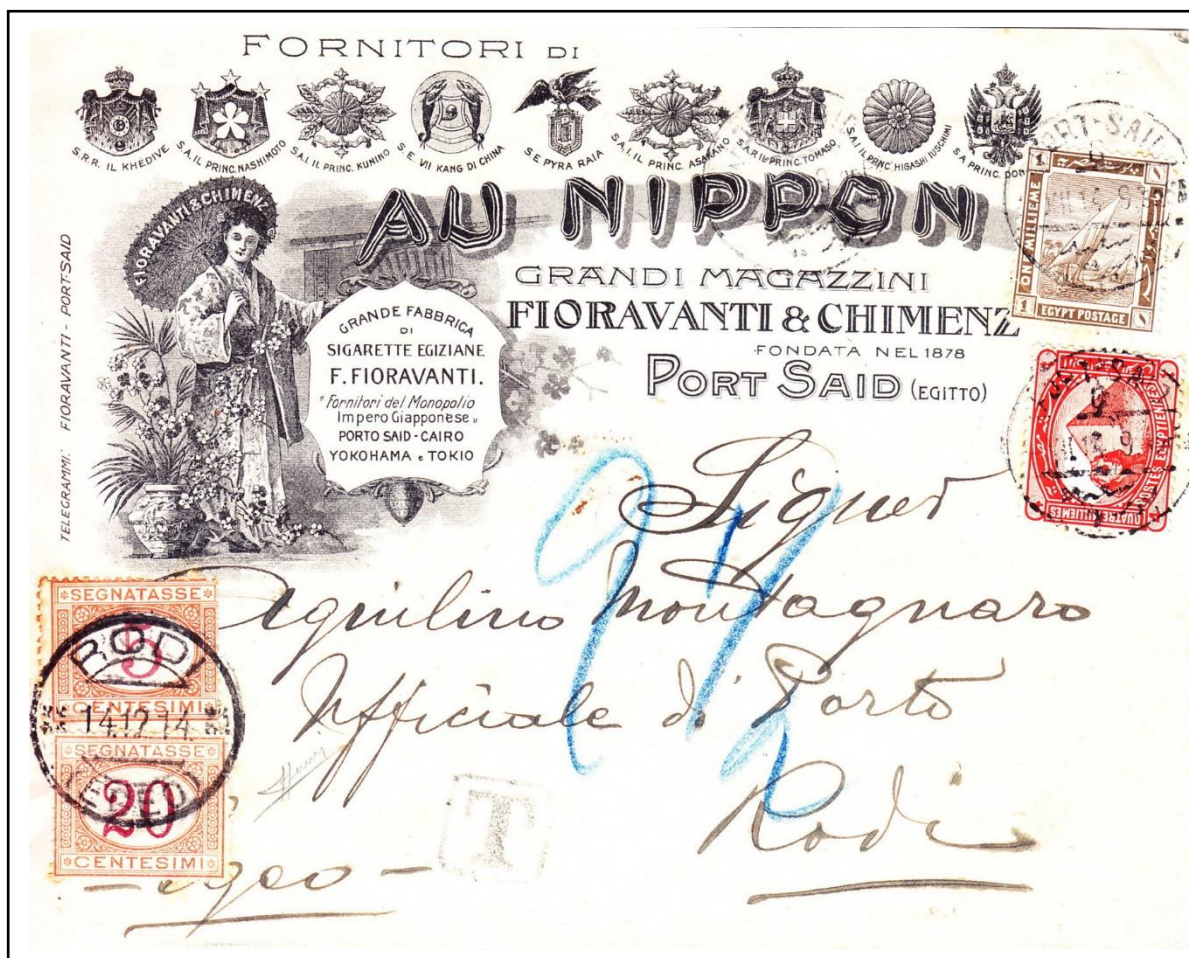 FORNITORI DI
S.R.R. IL KHEDIVE
S.A. IL PRINC. NASHIMOTO
S.A.I. IL PRINC. KUNINO
S.E. VII KANG DI CHINA
S.E PYRA RAIA
S.A.I. IL PRINC. ASAKANO
S.A.R IL PRINC. TOMASO
S.A.I IL PRINC. HIGASHI FUSCHIMI
S A PRINC. DON
AU NIPPON
GRANDI MAGAZZINI
FIORAVANTI & CHIMENZ
FONDATA NEL 1878
PORT SAID (EGITTO)
FIORAVANTI & CHIMENZ
TELEGRAMMI: FIORAVANTI - PORT-SAID
GRANDE FABBRICA
DI
SIGARETTE EGIZIANE
F. FIORAVANTI.
"Fornitori del Monopolio
Impero Giapponese"
PORTO SAID - CAIRO
YOKOHAMA e TOKIO
PORT-SAID
1 1
ONE MILLIEME
EGYPT POSTAGE
POSTES EGYPTIENNES
QUATRE MILLIEMES
Signor
Aquilino Montagnaro
Ufficiale di Porto
Rodi
- Egeo -
SEGNATASSE
5
CENTESIMI
SEGNATASSE
20
CENTESIMI
RODI
14.12.14.
T